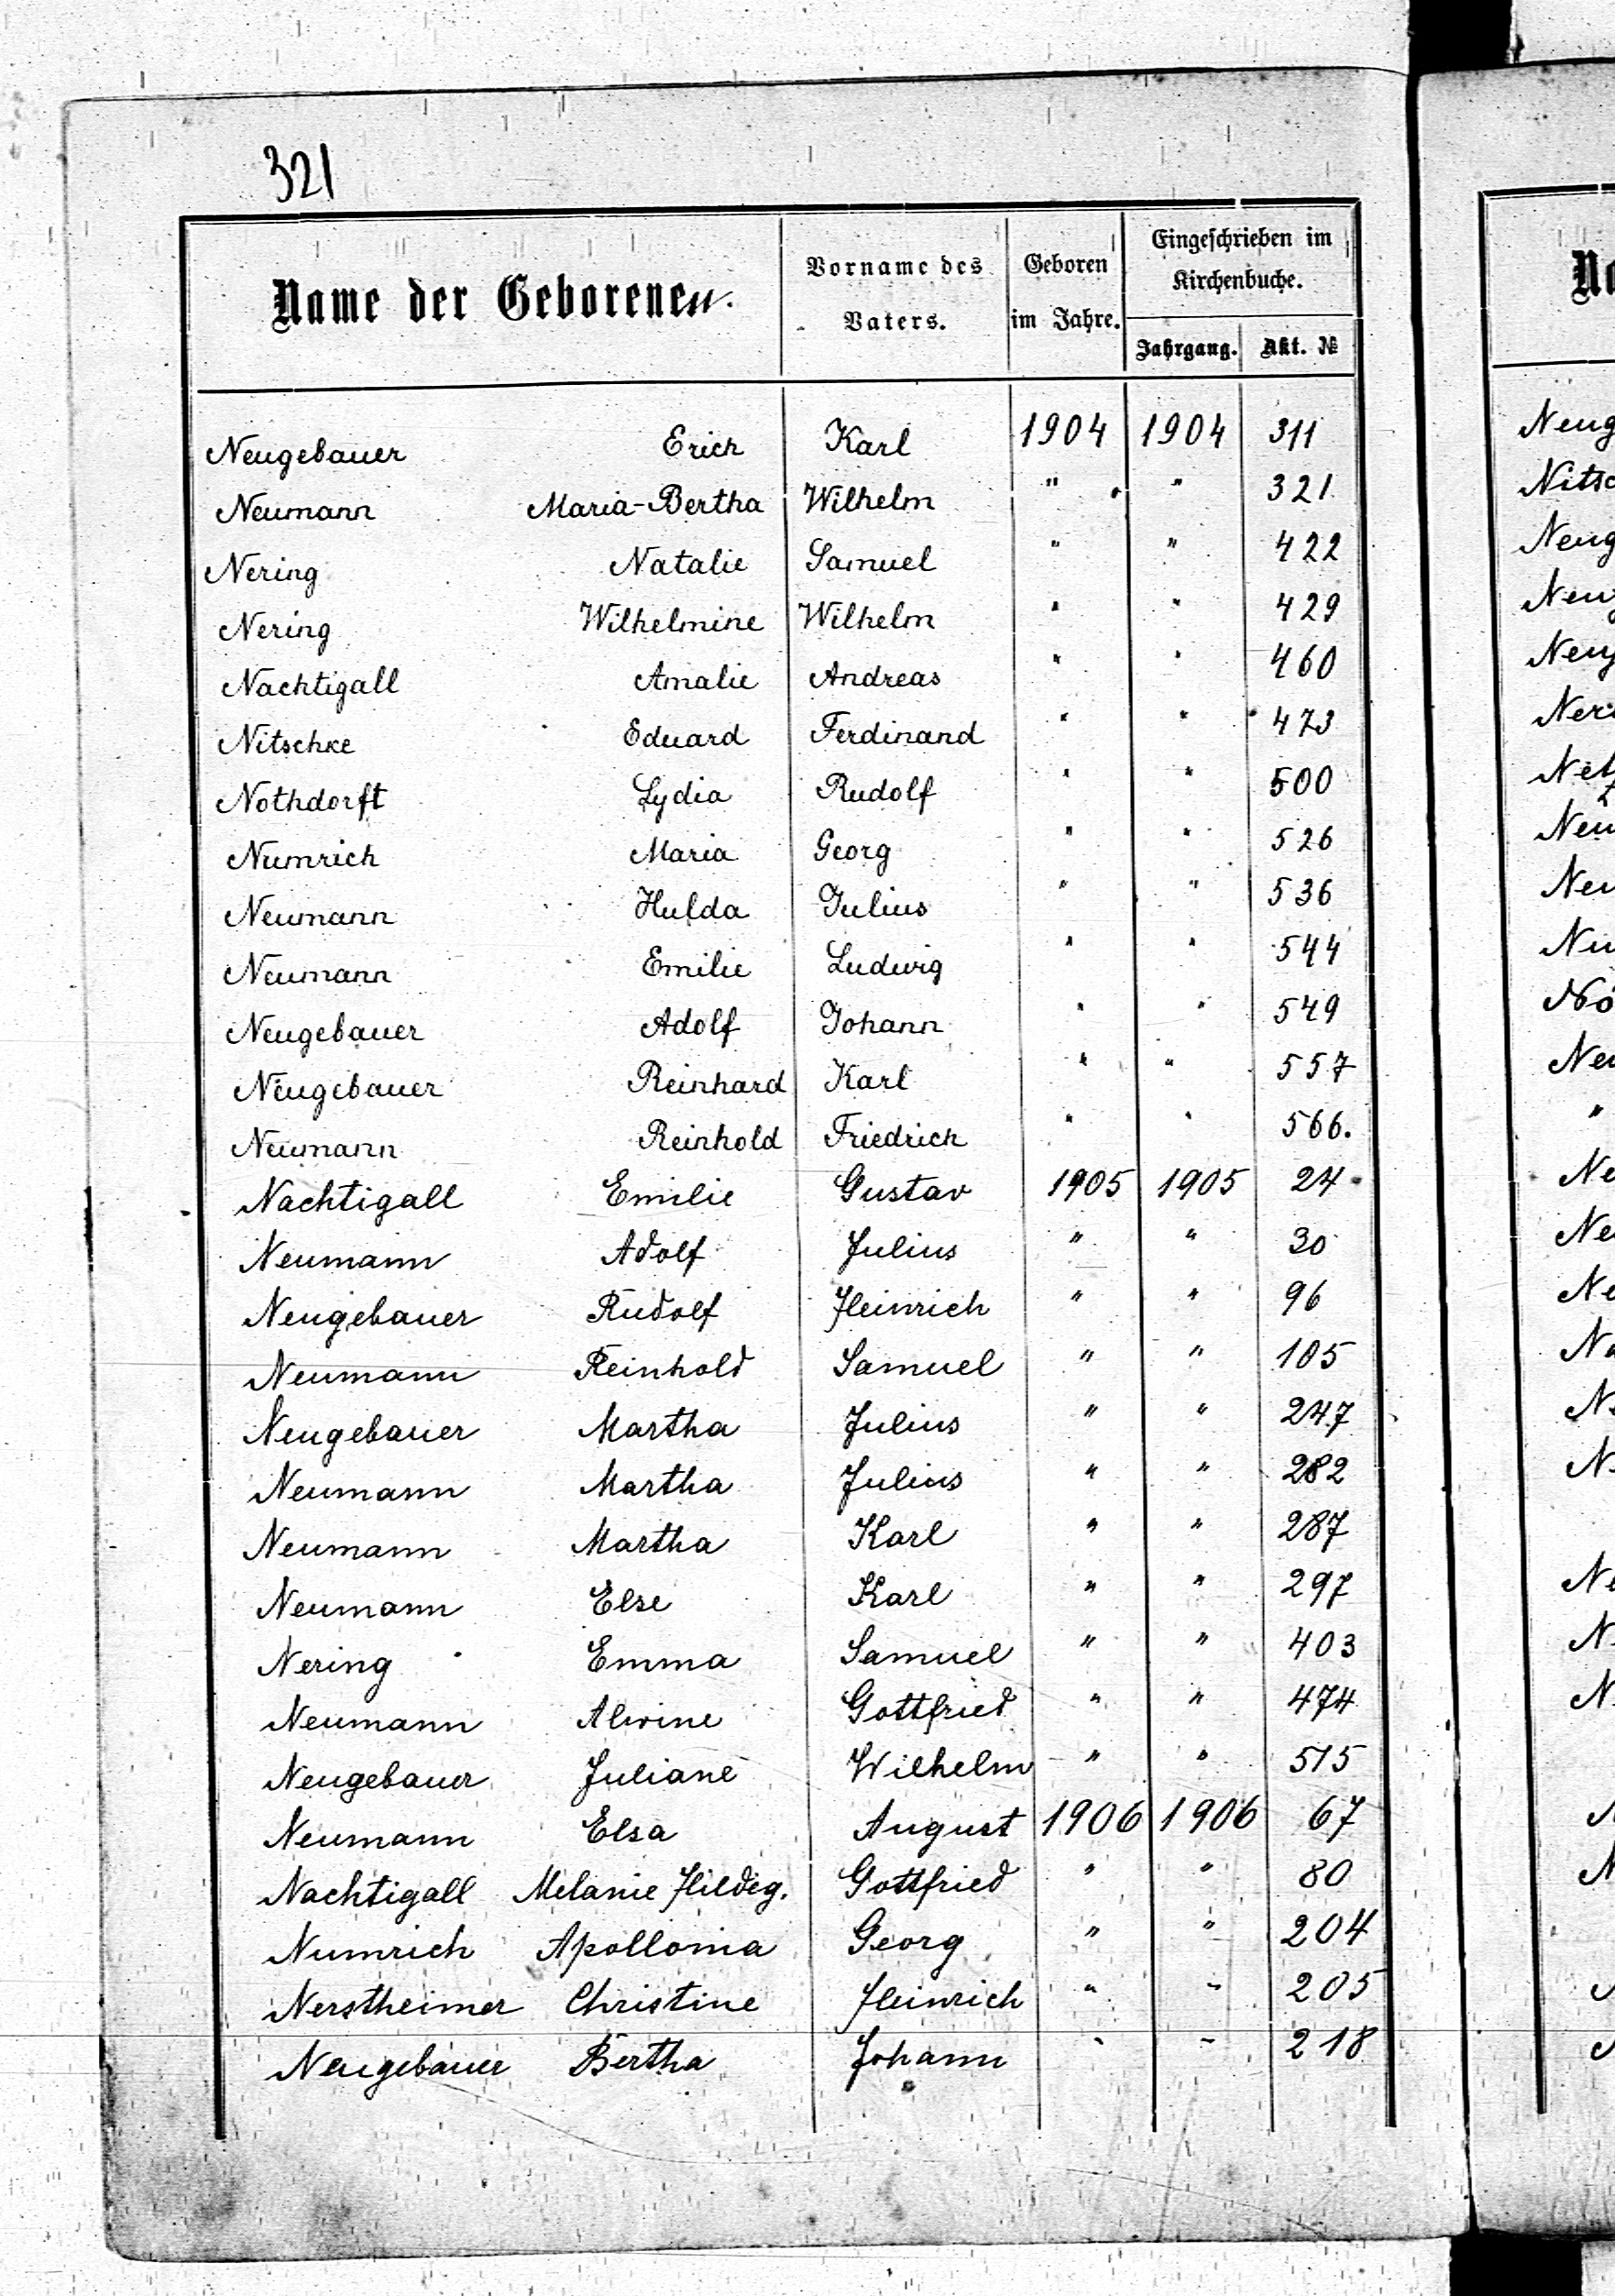 321
Name der Geborenen. Vorname des Vaters. Geboren im Jahre. Eingeschrieben im Kirchenbuche. Jahrgang. Akt. №
Neugebauer Erich Karl 1904 1904 311
Neumann Maria-Bertha Wilhelm " " 321
Nering Natalie Samuel " " 422
Nering Wilhelmine Wilhelm " " 429
Nachtigall Amalie Andreas " " 460
Nitschke Eduard Ferdinand " " 473
Nothdorft Lydia Rudolf " " 500
Numrich Maria Georg " " 526
Neumann Hulda Julius " " 536
Neumann Emilie Ludwig " " 544
Neugebauer Adolf Johann " " 549
Neugebauer Reinhard Karl " " 557
Neumann Reinhold Friedrich " " 566.
Nachtigall Emilie Gustav 1905 1905 24
Neumann Adolf Julius " " 30
Neugebauer Rudolf Heinrich " " 96
Neumann Reinhold Samuel " " 105
Neugebauer Martha Julius " " 247
Neumann Martha Julius " " 282
Neumann Martha Karl " " 287
Neumann Else Karl " " 297
Nering Emma Samuel " " 403
Neumann Alwine Gottfried " " 474
Neugebauer Juliane Wilhelm " " 515
Neumann Elsa August 1906 1906 67
Nachtigall Melanie Hildeg. Gottfried " " 80
Numrich Apollonia Georg " " 204
Nerstheimer Christine Heinrich " " 205
Neugebauer Bertha Johann " " 218